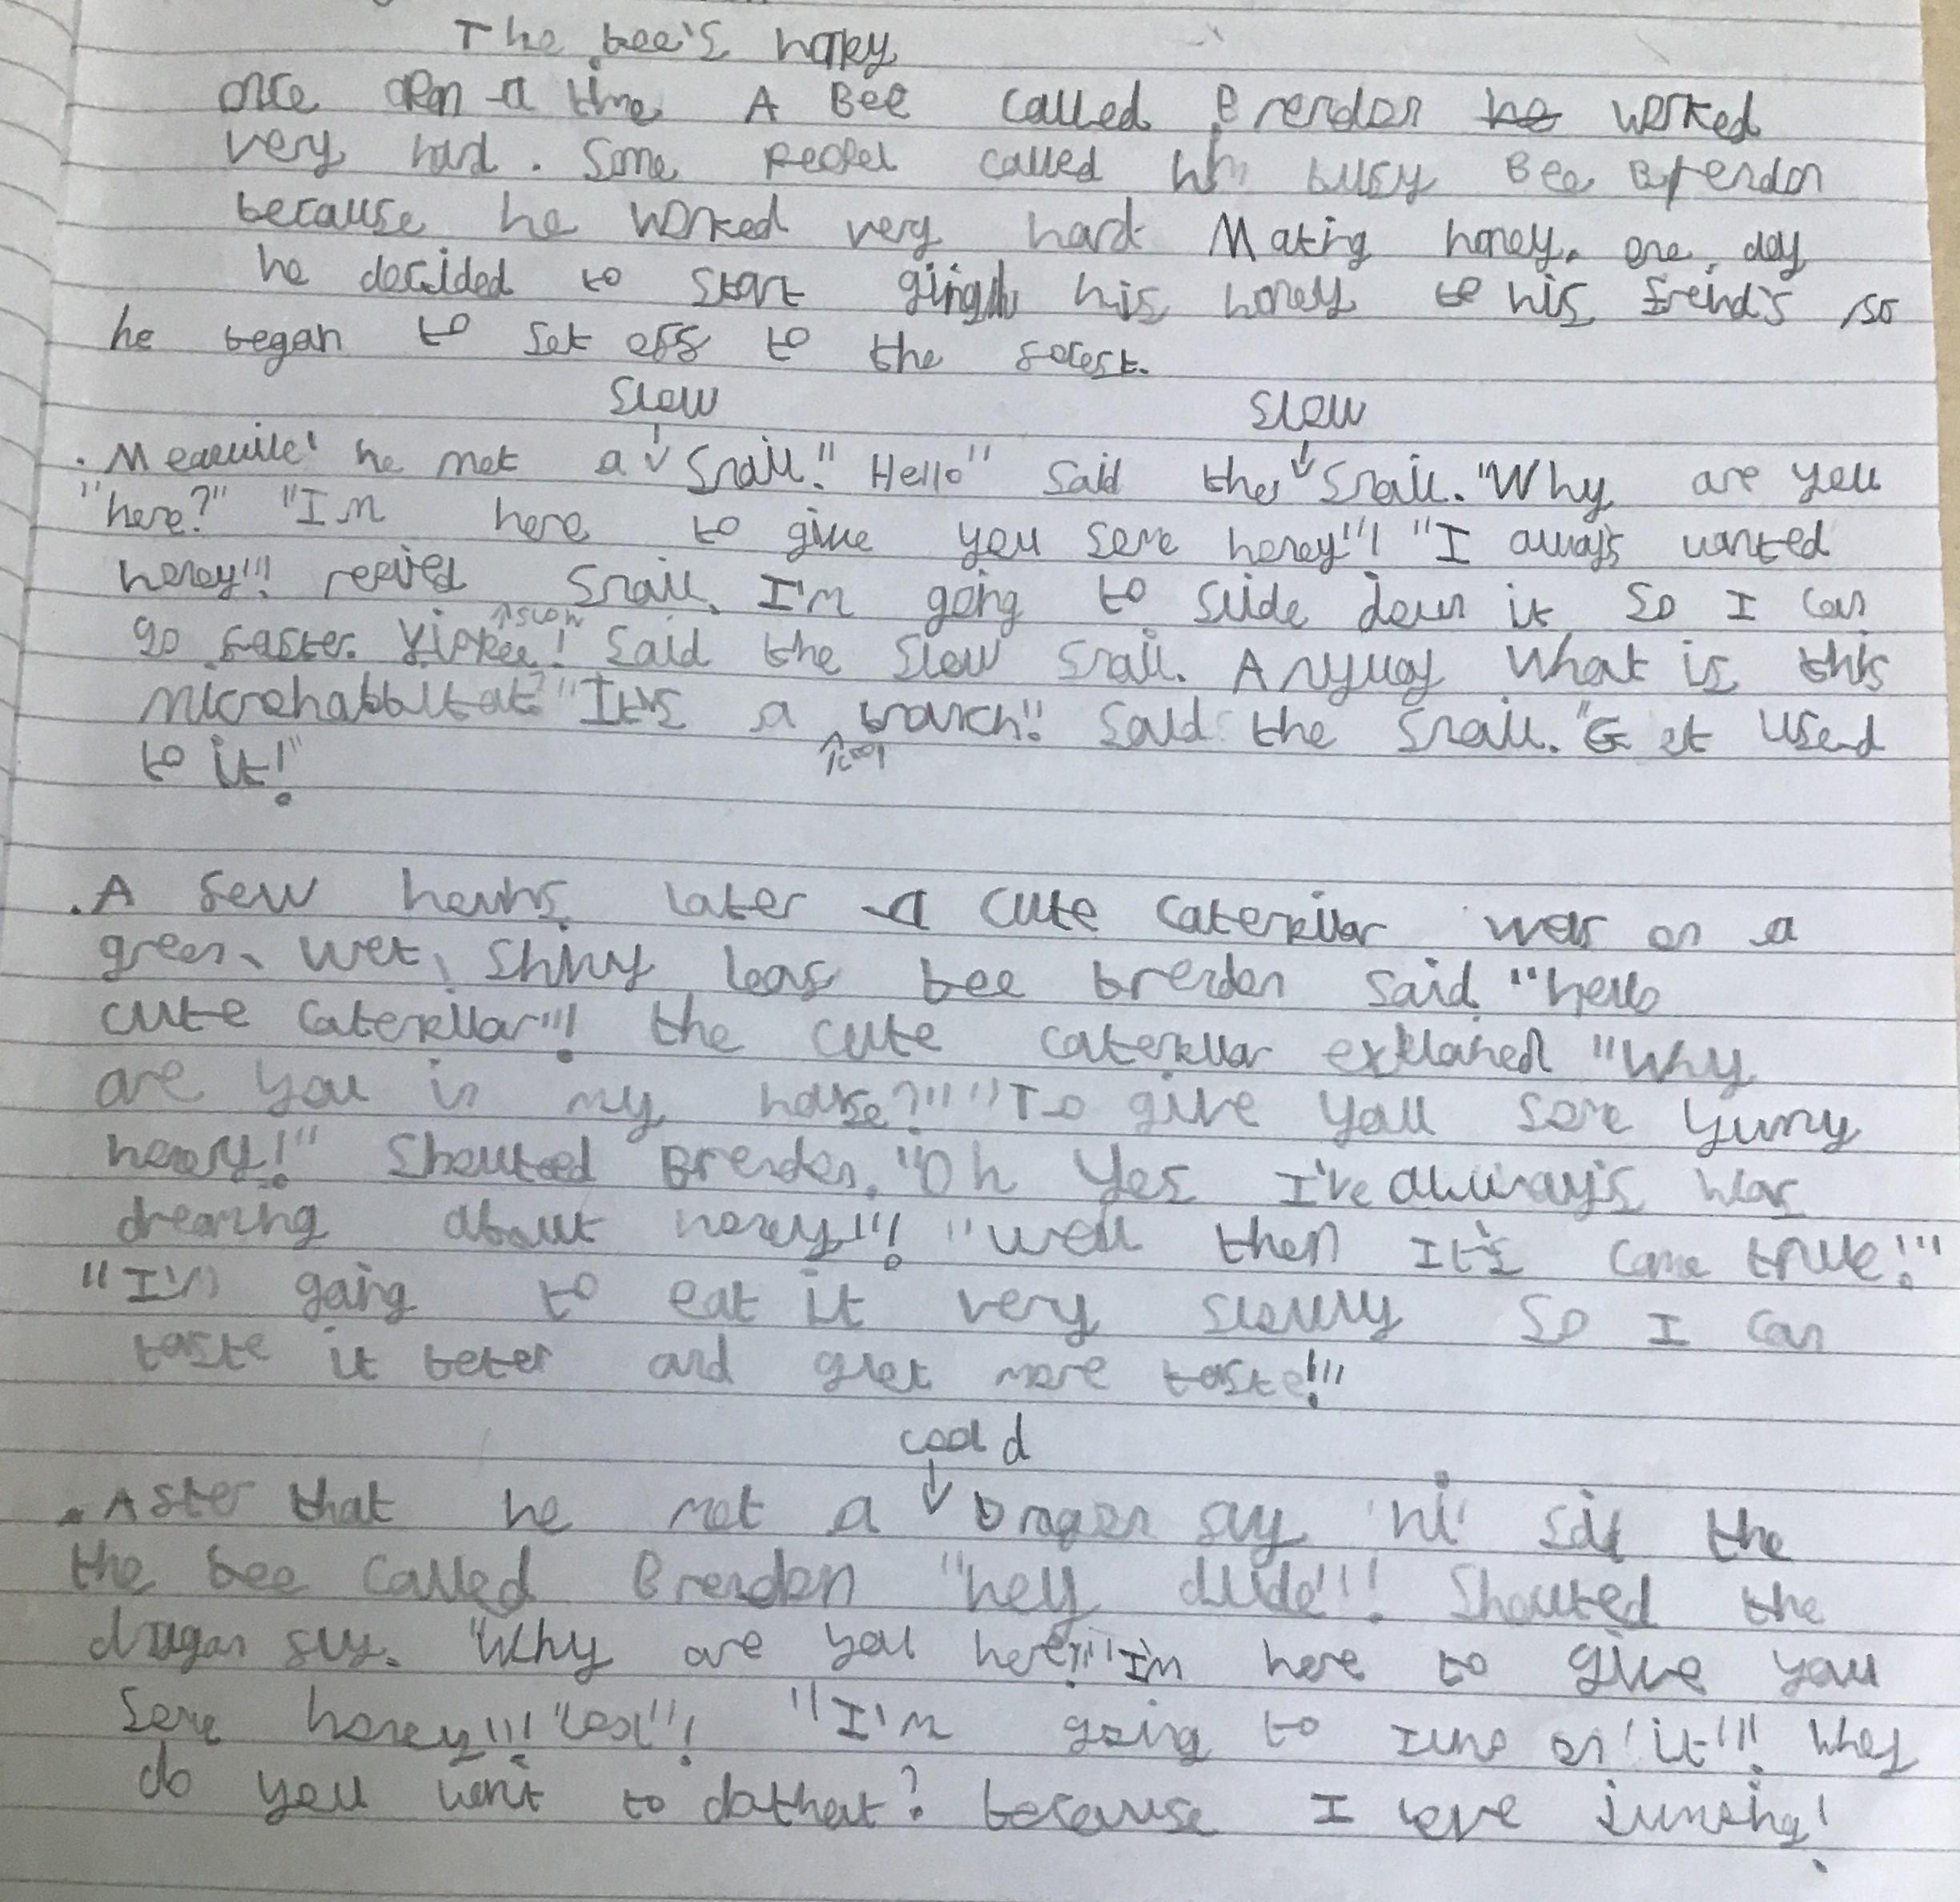 The bee's honey
once opon a time A Bee called Brendon he worked
very hard. Some peopel called him busy Bee Brendon
because he worked very hard Making honey. one day
he decided to start giving his honey to his frend's so
he began to set off to the forest.
slow slow
. Meanwile' he met a snail." Hello" said the snail. "Why are you
"here?" "Im here to give you some honey"! "I always wanted
honey"! repied snail. I'm going to slide down it so I can
slow
go faster. Yippee! said the slow snail. Anyway what is this
microhabbitat?" "It's a branch"! said the snail. "Get used
to it!"
. A few hours later a cute caterpillar was on a
green, wet, shiny leaf bee brendon said "hello
cute caterpillar"! the cute caterpillar explaned "Why
are you in my house?!" "To give you some yumy
honey!" shouted Brendon. "Oh yes I've always was
dreaming about honey"! "well then It's come true!"
"I'm going to eat it very slowly so I can
taste it beter and get more taste!"
coold
. After that he met a Dragon fly 'hi' said the
the bee called Brendon "hey dude"! Shouted the
dragon fly. "Why are you here?" "I'm here to give you
some honey"! "cool"! "I'm going to Jump on it"! Whey
do you want to do that? because I love jumping!